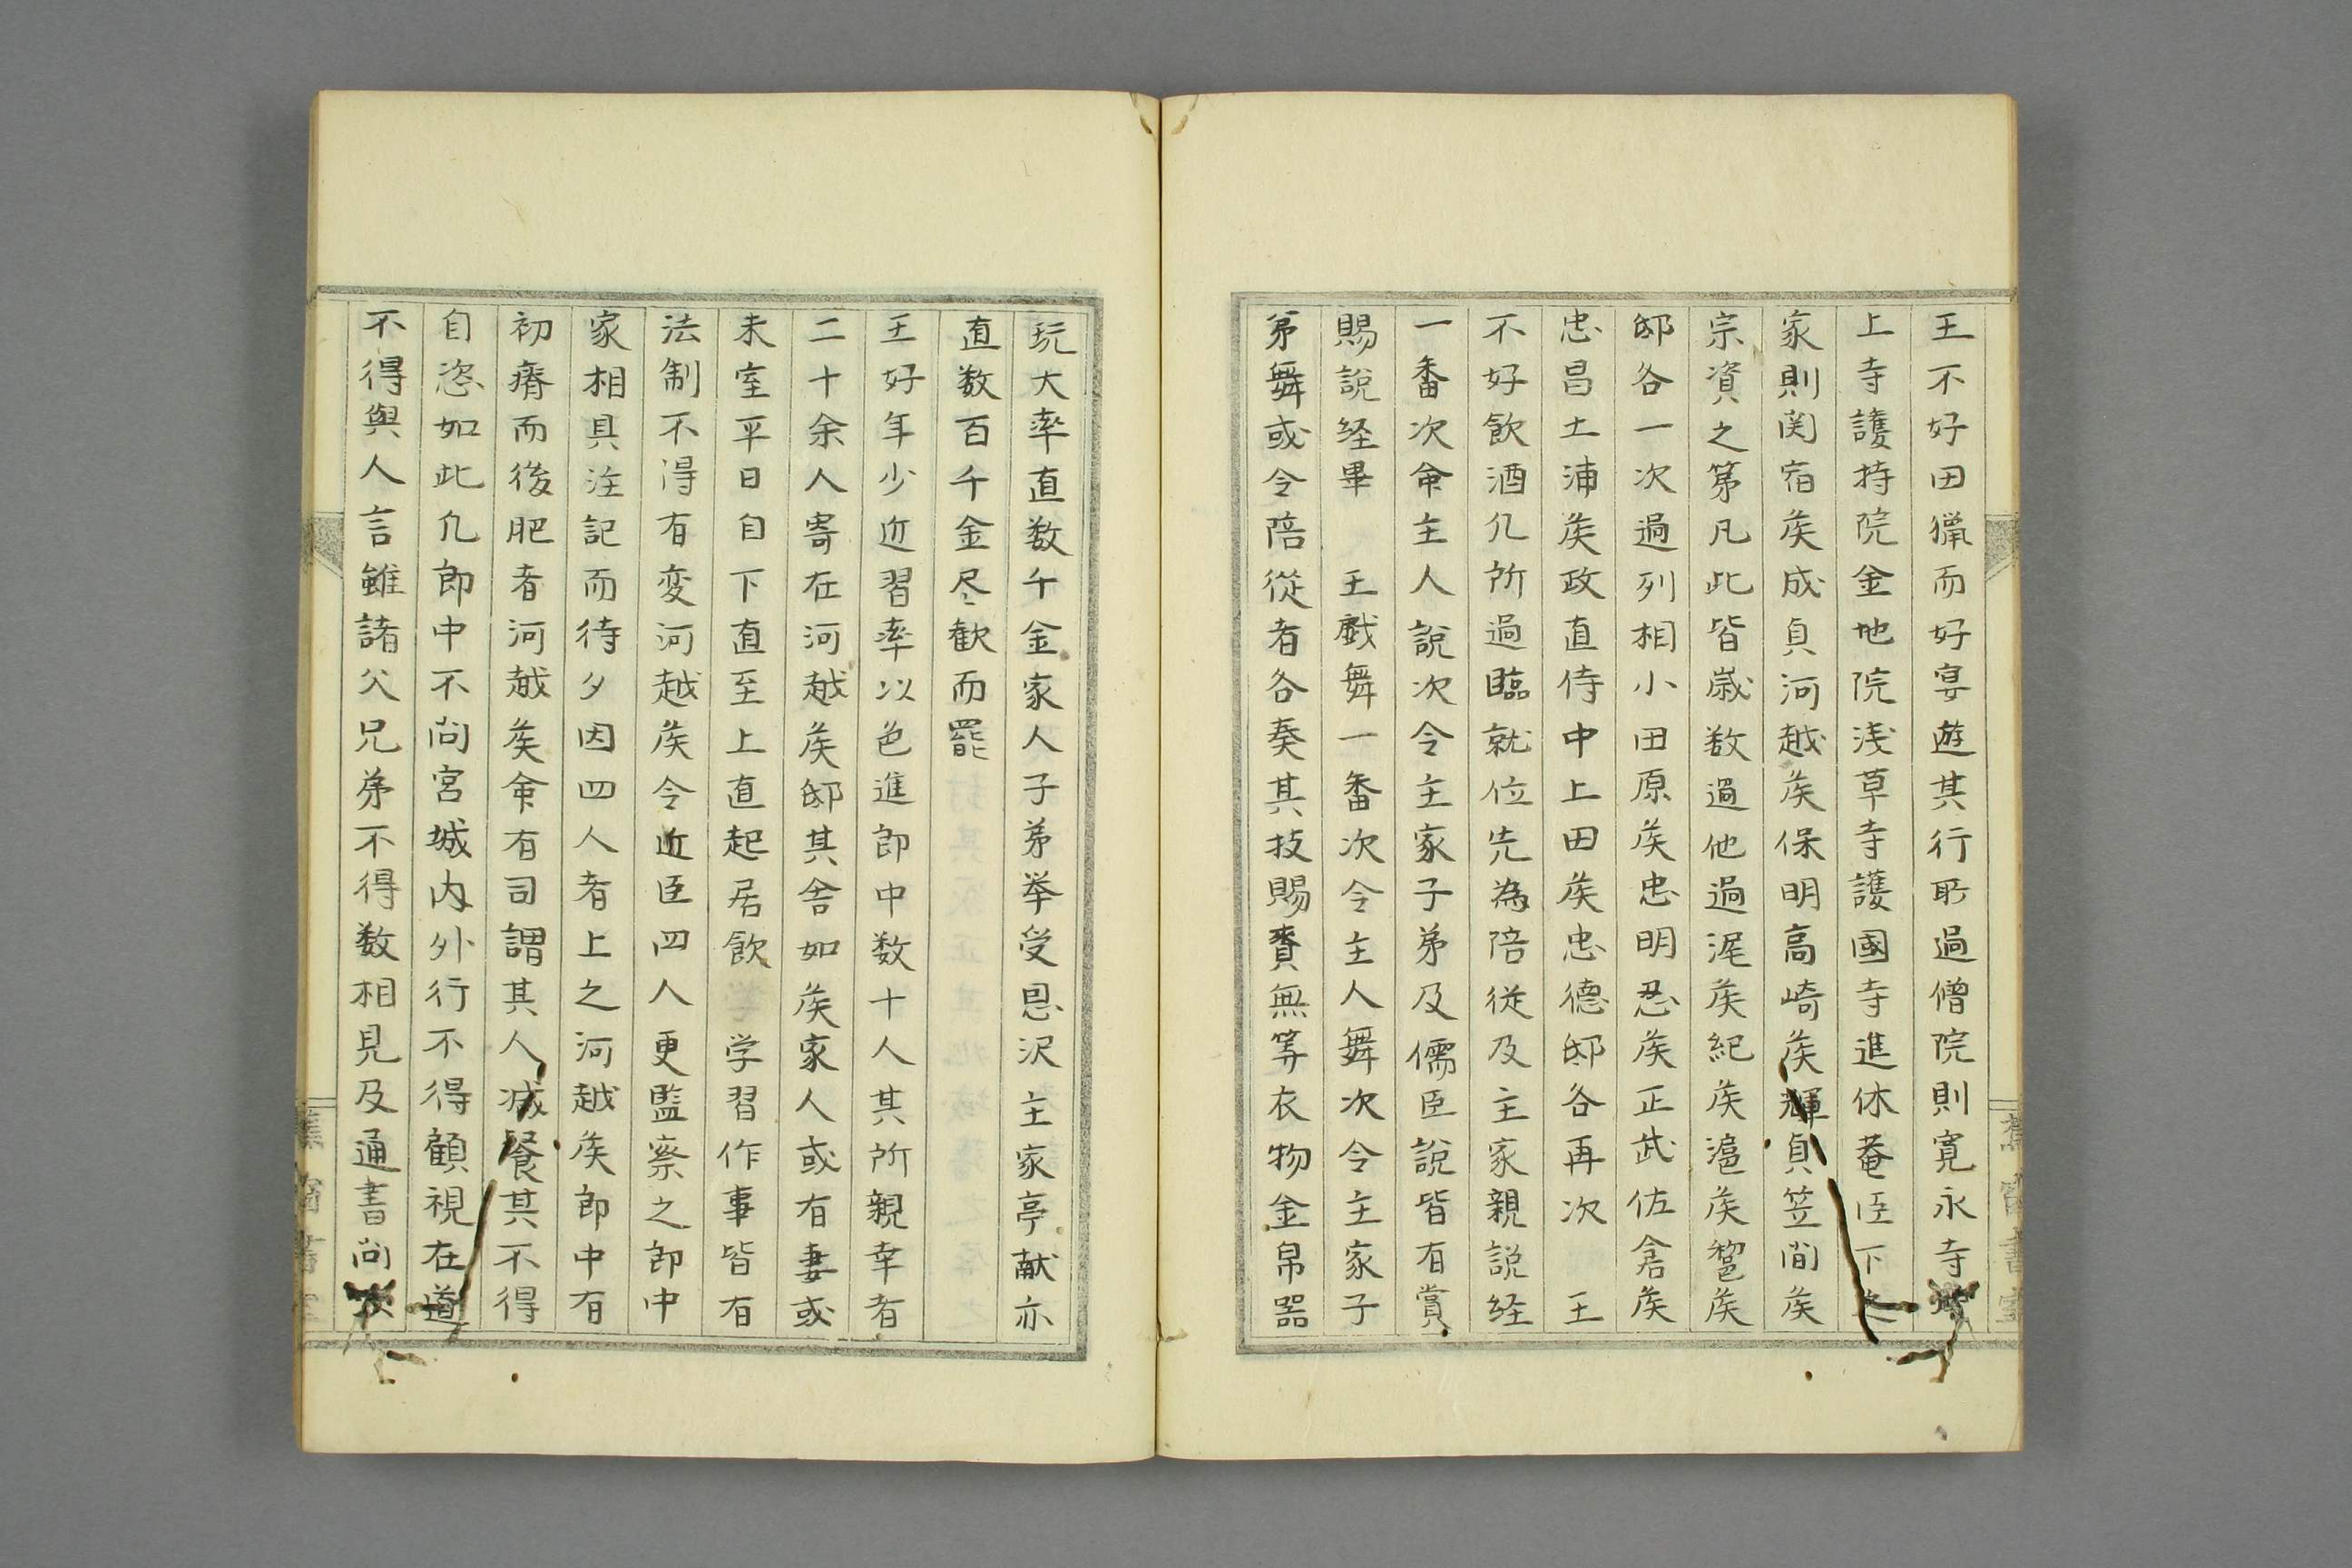 王不好田猟而好宴遊其行所過僧院則寛永寺
上寺護持院金地院浅草寺護國寺進休菴臣下之
家則関宿侯成貞河越侯保明高崎侯輝貞笠間侯
宗資之第凡此皆歳数過他過渥侯紀侯滬侯
邸各一次過列相小田原侯忠明忍侯正武佐倉侯
忠昌土浦侯政直侍中上田侯忠德邸各再次　王
不好飲酒凡所過臨就位先為陪従及主家親説経
一番次命主人說次令主家子弟及儒臣說皆有賞
賜說経畢　王戯舞一番次令主人舞次令主家子
弟舞或令陪從者各奏其技賜賚無筭衣物金帛器
玩大率直数千金家人子弟挙受恩沢主家亭献亦
直数百千金尽歓而罷
王好年少近習率以色進郎中数十人其所親幸者
二十余人寄在河越侯邸其舎如侯家人或有妻或
未室平日自下直至上直起居飲　学習作事皆有
法制不得有変河越侯令近臣四人更監察之郎中
家相具注記而待夕因四人者上之河越侯郎中有
初瘠而後肥者河越侯命有司謂其人減餐其不得
自恣如此凡郎中不尚宮城内外行不得顧視在道
不得與人言雖諸父兄弟不得数相見及通書尚